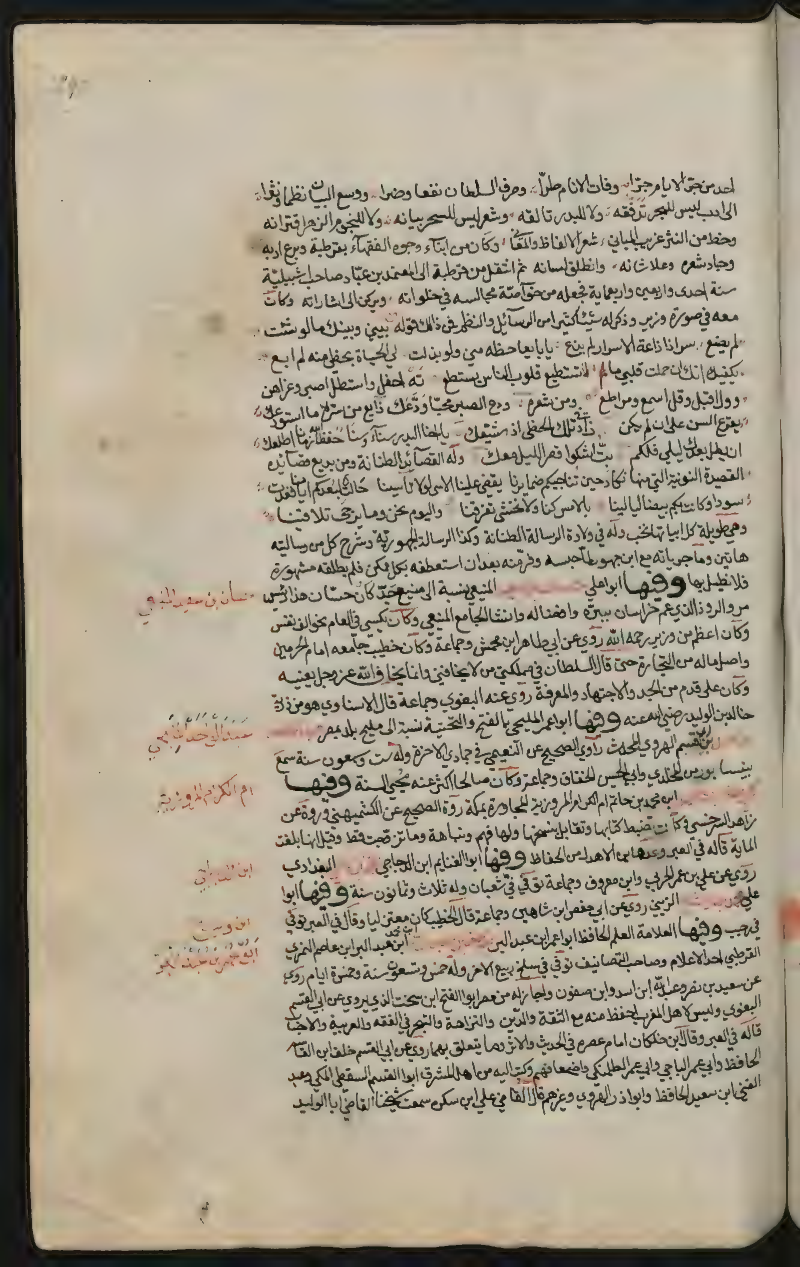 احد من جر الايام جرا وفات الانام طرا وصرف السلطان نفعا وضرا ووسع البيان نظما ونثرا
الى ادب ليس للبحر تدفقه ولا للبدر تالقه وشعر ليس للسحر بيانه ولا للنجوم الزهر اقترانه
وحظ من النثر غريب المباني شعري الالفاظ والمعاني وكان من ابناء وجوه الفقهاء بقرطبة وبرع ادبه
وجاد شعره وعلا شانه وانطلق لسانه ثم انتقل من قرطبة الى المعتمد بن عباد صاحب اشبيلية
سنة احدى واربعين واربعماية فجعله من خواصه يجالسه في خلواته ويركن الى اشاراته وكان
معه في صورة وزير وذكر له شيئا كثيرا من الرسايل والنظم فمن ذلك قوله بيني وبينك ما لو شئت
لم يضع سر اذا ذاعت الاسرار لم يذع يا بايعا حظه مني ولو بذلت لي الحياة بحظي منه لم ابع
يكفيك انك ان حملت قلبي ما لم تستطيع قلوب الناس يستطع ته احتمل واستطل اصبر وعز اهن
وول اقبل وقل اسمع ومر اطع ومن شعره ودع الصبر محب ودعك ذايع من سره ما استودعك
يقرع السن على ان لم يكن زاد في تلك الخطى اذ شيعك يا اخا البدر سناء وسنا حفظ الله زمانا اطلعك
ان يطل بعدك ليلي فلكم بت اشكو قصر الليل معك وله القصايد الطنانة ومن بديع قصايده
القصيدة النونية التي منها نكاد حين تناجيكم ضمايرنا يقضي علينا الاسى لولا تاسينا حالت لبعدكم ايامنا فغدت
سودا وكانت بكم بيضا ليالينا بالامس كنا ولا نخشى تفرقنا واليوم نحن وما يرجى تلاقينا
وهي طويلة كل ابياتها نخب وله في ولادة الرسالة الطنانة وكذا الرسالة الجهورية وشرح كل من رسالتيه
هاتين وما جرياته مع ابن جهور لما حبسه وفر منه بعد ان استعطفه بكل ممكن فلم يطلقه مشهورة
فلا نطيل بها وفيها ابو علي المنيعي نسبة الى منيع جد كان حسان هذا رئيس
مرو الروذ الذي عم خراسان ببره وافضاله وانشا الجامع المنيعي وكان يكسي في العام نحو الف نفس
وكان اعظم من وزير رحمه الله روى عن ابي طاهر ابن محمش وجماعة وكان خطيب جامعه امام الحرمين
واصل ماله من التجارة حتى قال السلطان في مملكتي من لا يخافني وانما يخاف الله عز وجل يعنيه
وكان على قدم من الجد والاجتهاد والمعرفة روى عنه البغوي وجماعة قال الاسناوي هو من ذرية
خالد بن الوليد رضي الله عنه وفيها ابو عمر المليحي بالفتح والتحتية نسبة الى مليح بلد بمصر
بن القسم الهروي المحدث راوي الصحيح عن النعيمي في جمادي الاخرة وله ست وسعون سنة سمع
بنيسابور من المخلدي وابي الحسن الخفاف وجماعة وكان صالحا اكثر عنه محيي السنة وفيها
ابن محمد بن حاتم ام الكرام المروزية المجاورة بمكة روت الصحيح عن الكشميهني وروت عن
زاهد السرخسي وكانت تضبط كتابها وتقابل بنسخها ولها فهم ونباهة وما تزوجت قط وقيل انها بلغت
الماية قاله في العبر وعدها ابن الاهدل من الحفاظ وفيها ابو الغنايم ابن الدجاجي البغدادي
روى عن علي بن عمر الحربي وابن معروف وجماعة توفي في شعبان وله ثلاث وثمانون سنة وفيها ابو
علي الزيني روى عن ابي حفص ابن شاهين وجماعة قال الخطيب كان معتزليا وقال في العبر توفي
في رجب وفيها العلامة العلم الحافظ ابو عمر ابن عبد البر ابن عبد البر ابن عاصم النمري
القرطبي احد الاعلام وصاحب التصانيف توفي في سلخ ربيع الاخر وله خمس وتسعون سنة وخمسة ايام روى
عن سعيد بن نصر وعبد الله ابن اسد وابن صفون واجاز له من مصر ابو الفتح ابن سيبخت الذي يروي عن ابي القسم
البغوي وليس لاهل المغرب احفظ منه مع الثقة والدين والنزاهة والتبحر في الفقه والعربية والاخبار
قاله في العبر وقال ابن خلكان امام عصره في الحديث والاثر وما يتعلق بهما روى عن ابي القسم خلف ابن القاسم
الحافظ وابي عمر الباجي وابي عمر الطلمنكي واضعافهم وكتب اليه من اهل المشرق ابو القسم السقطي المكي وعبد
الغني ابن سعيد الحافظ وابو ذر الهروي وغيرهم قال القاضي علي ابن سكره سمعت شيخنا القاضي ابا الوليد
حسان بن سعيد المنيعي
عبد الواحد المليحي
ام الكرام المروزية
ابن الدجاجي